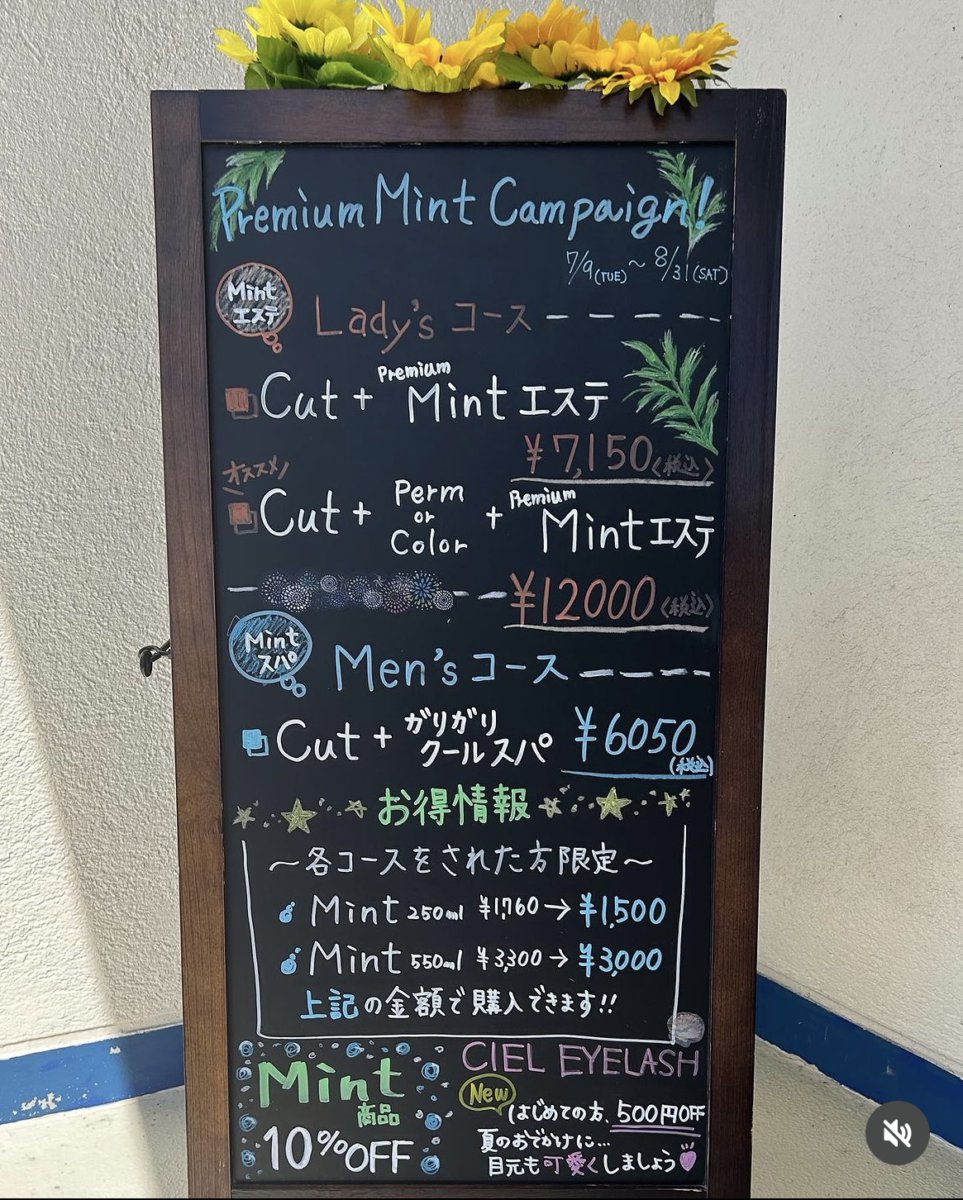 Premium Mint Campaign!
7/9(TUE)～8/31(SAT)
Mint
エステ
Lady's コース
Cut + Premium Mint エステ
¥7,150〈税込〉
オススメ!
Cut + Perm or Color + Premium Mint エステ
¥12000〈税込〉
Mint
スパ
Men's コース
Cut + ガリガリ クールスパ ¥6050
(税込)
お得情報
～各コースをされた方限定～
Mint 250ml ¥1,760→¥1,500
Mint 550ml ¥3,300→¥3,000
上記の金額で購入できます!!
Mint
商品
10%OFF
CIEL EYELASH
New
はじめての方、500円OFF
夏のおでかけに…
目元も可愛くしましょう